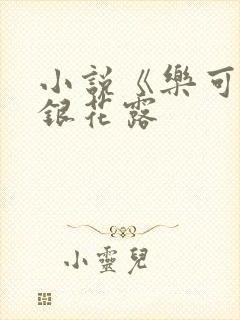 小說《樂可
銀花露
小靈兒